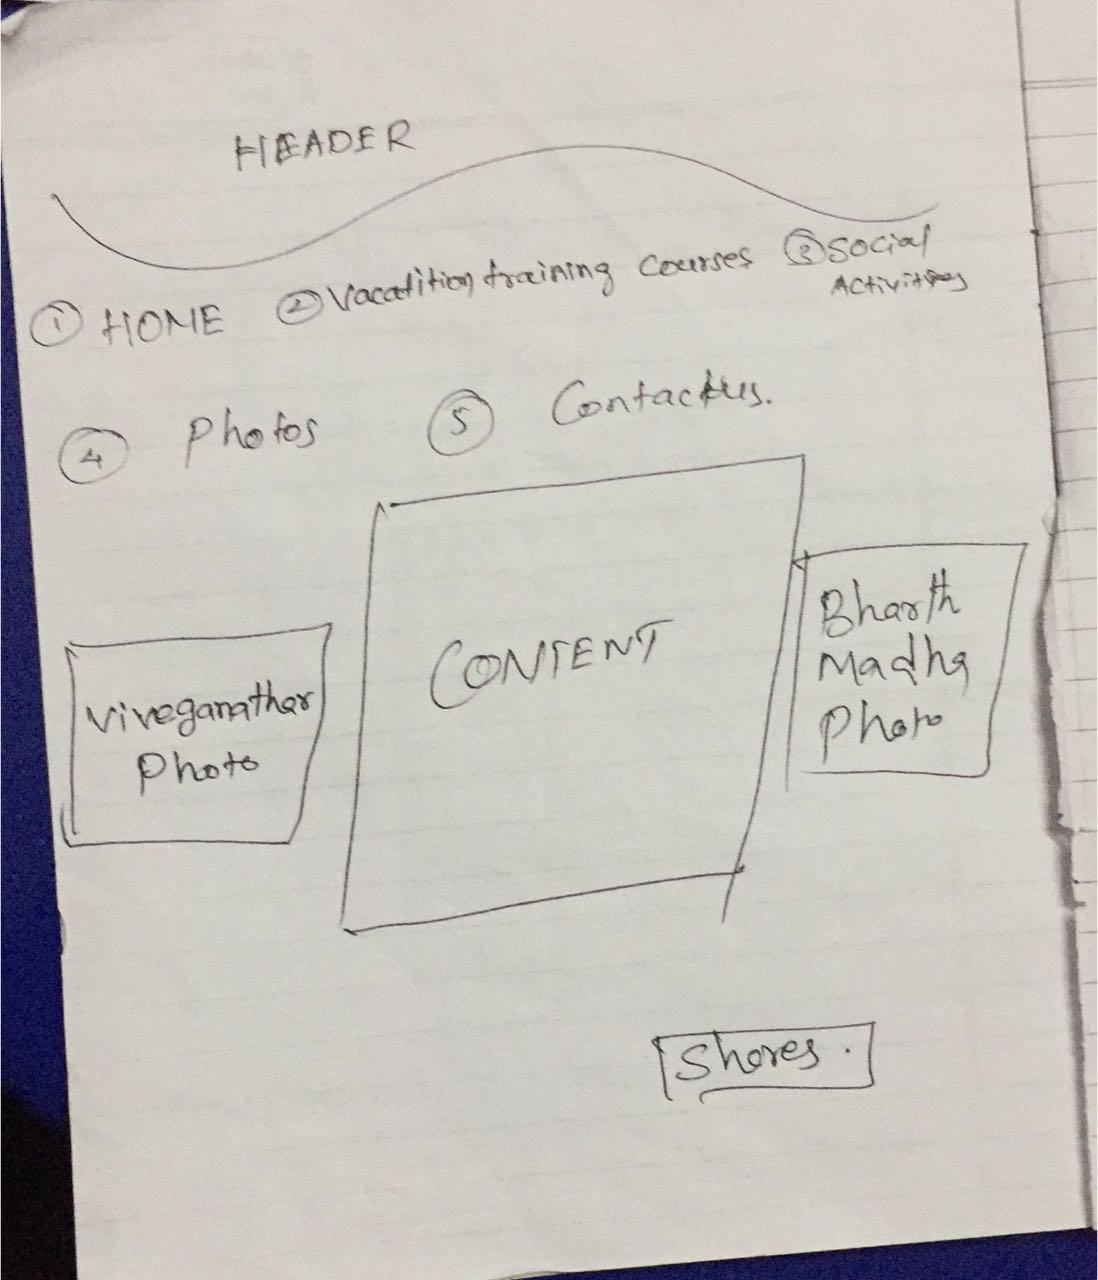 HEADER
① HOME ② Vacatition training courses ③ Social
Activities
④ Photos ⑤ Contactus.
CONTENT
Viveganathar
Photo
Bharth
Madha
Photo
Shares.